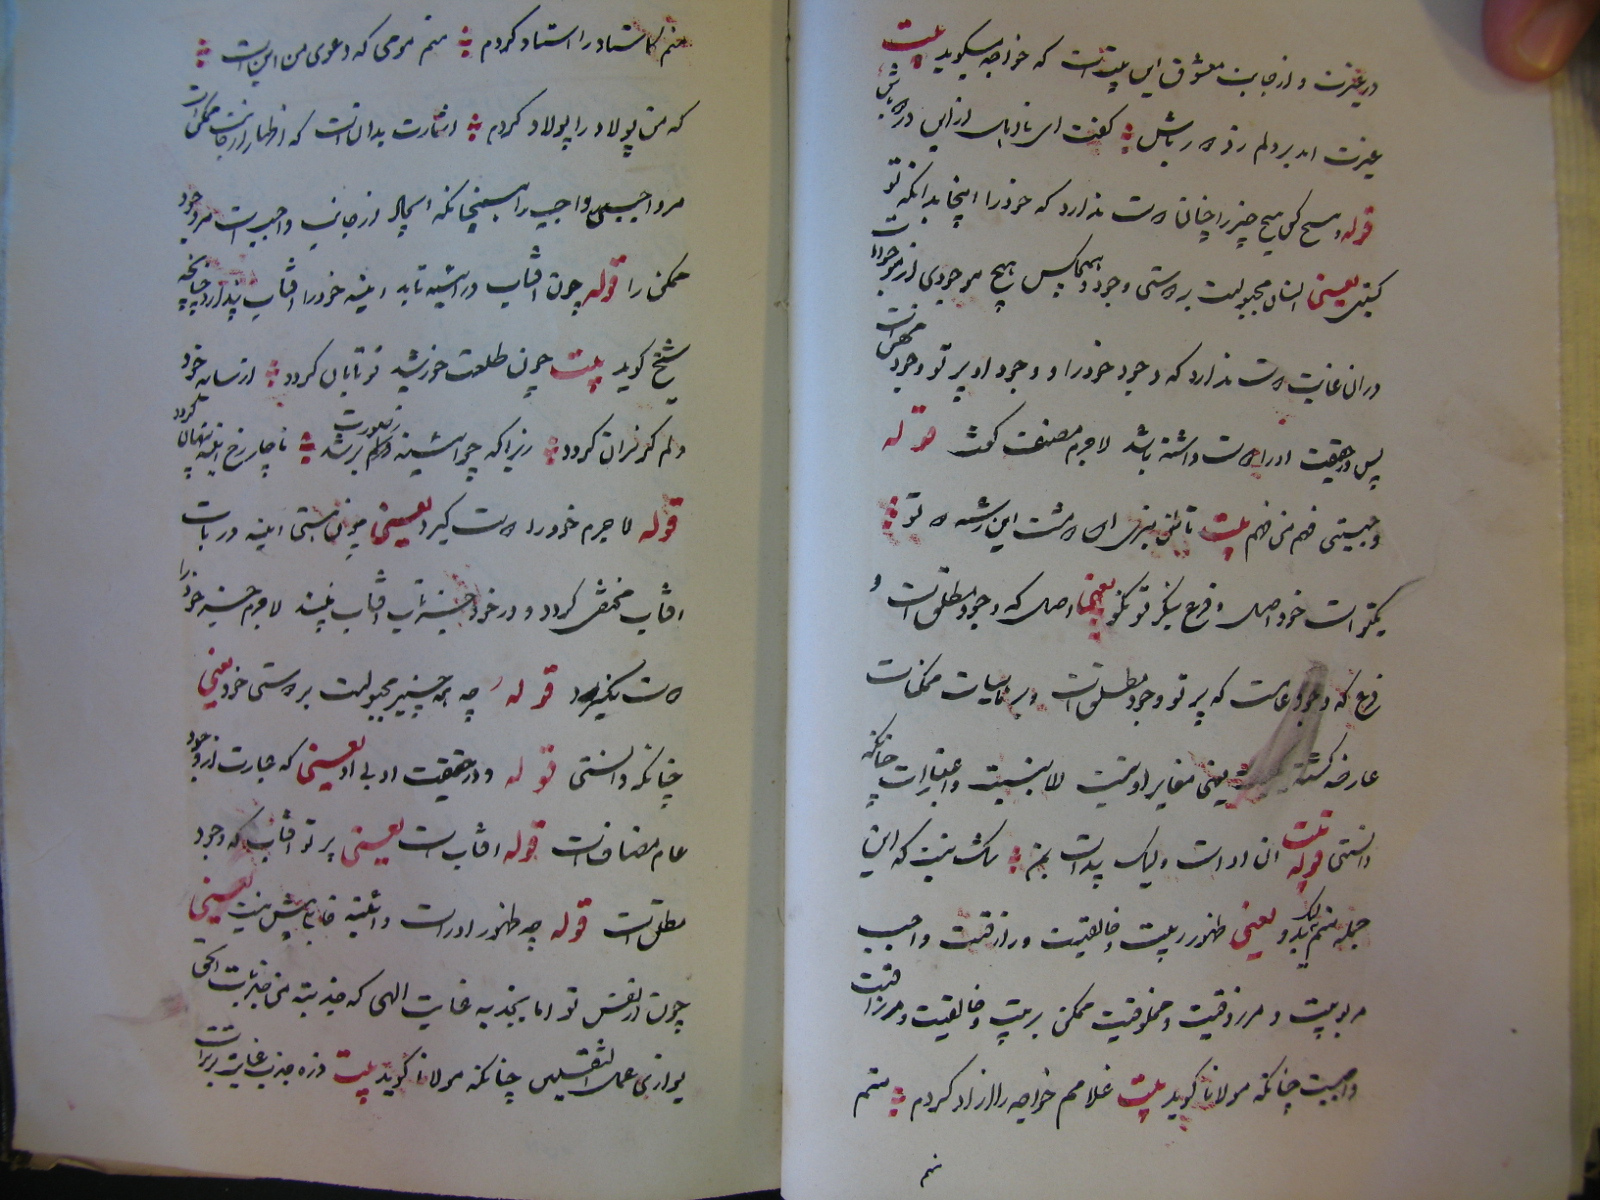 در غیرت و از جانب معشوق این بیت است که خواجه میگوید بیت
غیرت امد بر دلم زد دور باش گفت ای نادان ازین در دور باش
قوله هیچ کس هیچ چیز را چنان دوست ندارد که خود را اینجا بدانکه تو
کیستی یعنی انسان مجبولست بر دوستی وجود و هیچکس هیچ موجودی از موجودات
دران غایت دوست ندارد که وجود خود را و وجود او پر تو وجود
پس در حقیقت او را دوست داشته باشد لاجرم مصنف گفت قوله
و چیستی فهم من فهم بیت
یکتو است خود اصل و فرع بنگر تو نکو یعنی اصل که وجود مطلق است و
فرع که وجود عامست که پر تو وجود مطلق است و بر ماهیات ممکنات
عارض گشته یعنی مغایر او نیست الا بنسبت و اعتبارات چنانکه
دانستی قوله بیت ان او است ولیک پیداست بمن شک نیست که این
جمله منم یعنی ظهور ربیت و خالقیت و رازقیت واجب
مربوبیت و مرزوقیت و مخلوقیت ممکن ربیت و خالقیت و رازقیت
واجبست چنانکه مولانا گوید بیت غلامم خواجه را ازاد کردم منم
منم
منم کاستاد را استاد کردم منم مومی که دعوی من این است
که من پولاد را پولاد کردم اشارت بدان است که اظهار از جانب ممکن است
مر واجبی واجب را همچنانکه ایجاد از جانب واجب است مر وجود
ممکن را قوله چون افتاب در ائینه تابد اینه خود را افتاب پندارد چنانچه
شیخ گوید بیت چون طلعت خورشید تو تابان گردد از سایه خود
دلم گریزان گردد زیرا که چو ائینه دلم پر شد ناچار رخ اینه پنهان گردد
قوله لاجرم خود را دوست گیرد یعنی چون هستی اینه در تاب
افتاب مختفی گردد و در خود جز تاب افتاب نبیند لاجرم جز خود را
دوست نگیرد قوله چه همه چیز مجبولست بر دوستی خود یعنی
چنانکه دانستی قوله و در حقیقت او بی او یعنی که عبارت از وجود
عام مضاف است قوله افتاب است یعنی پر تو افتاب که وجود
مطلق است قوله چه ظهور او راست و ائینه قابل بیش نیست یعنی
چون از نفس تو اما بجذبه عنایت الهی که جذبة من جذبات الحق
یوازی عمل الثقلین چنانکه مولانا گوید بیت ذره جذب عنایت برتر است